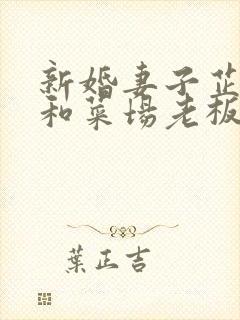 新婚妻子芷
和菜場老板
葉正吉